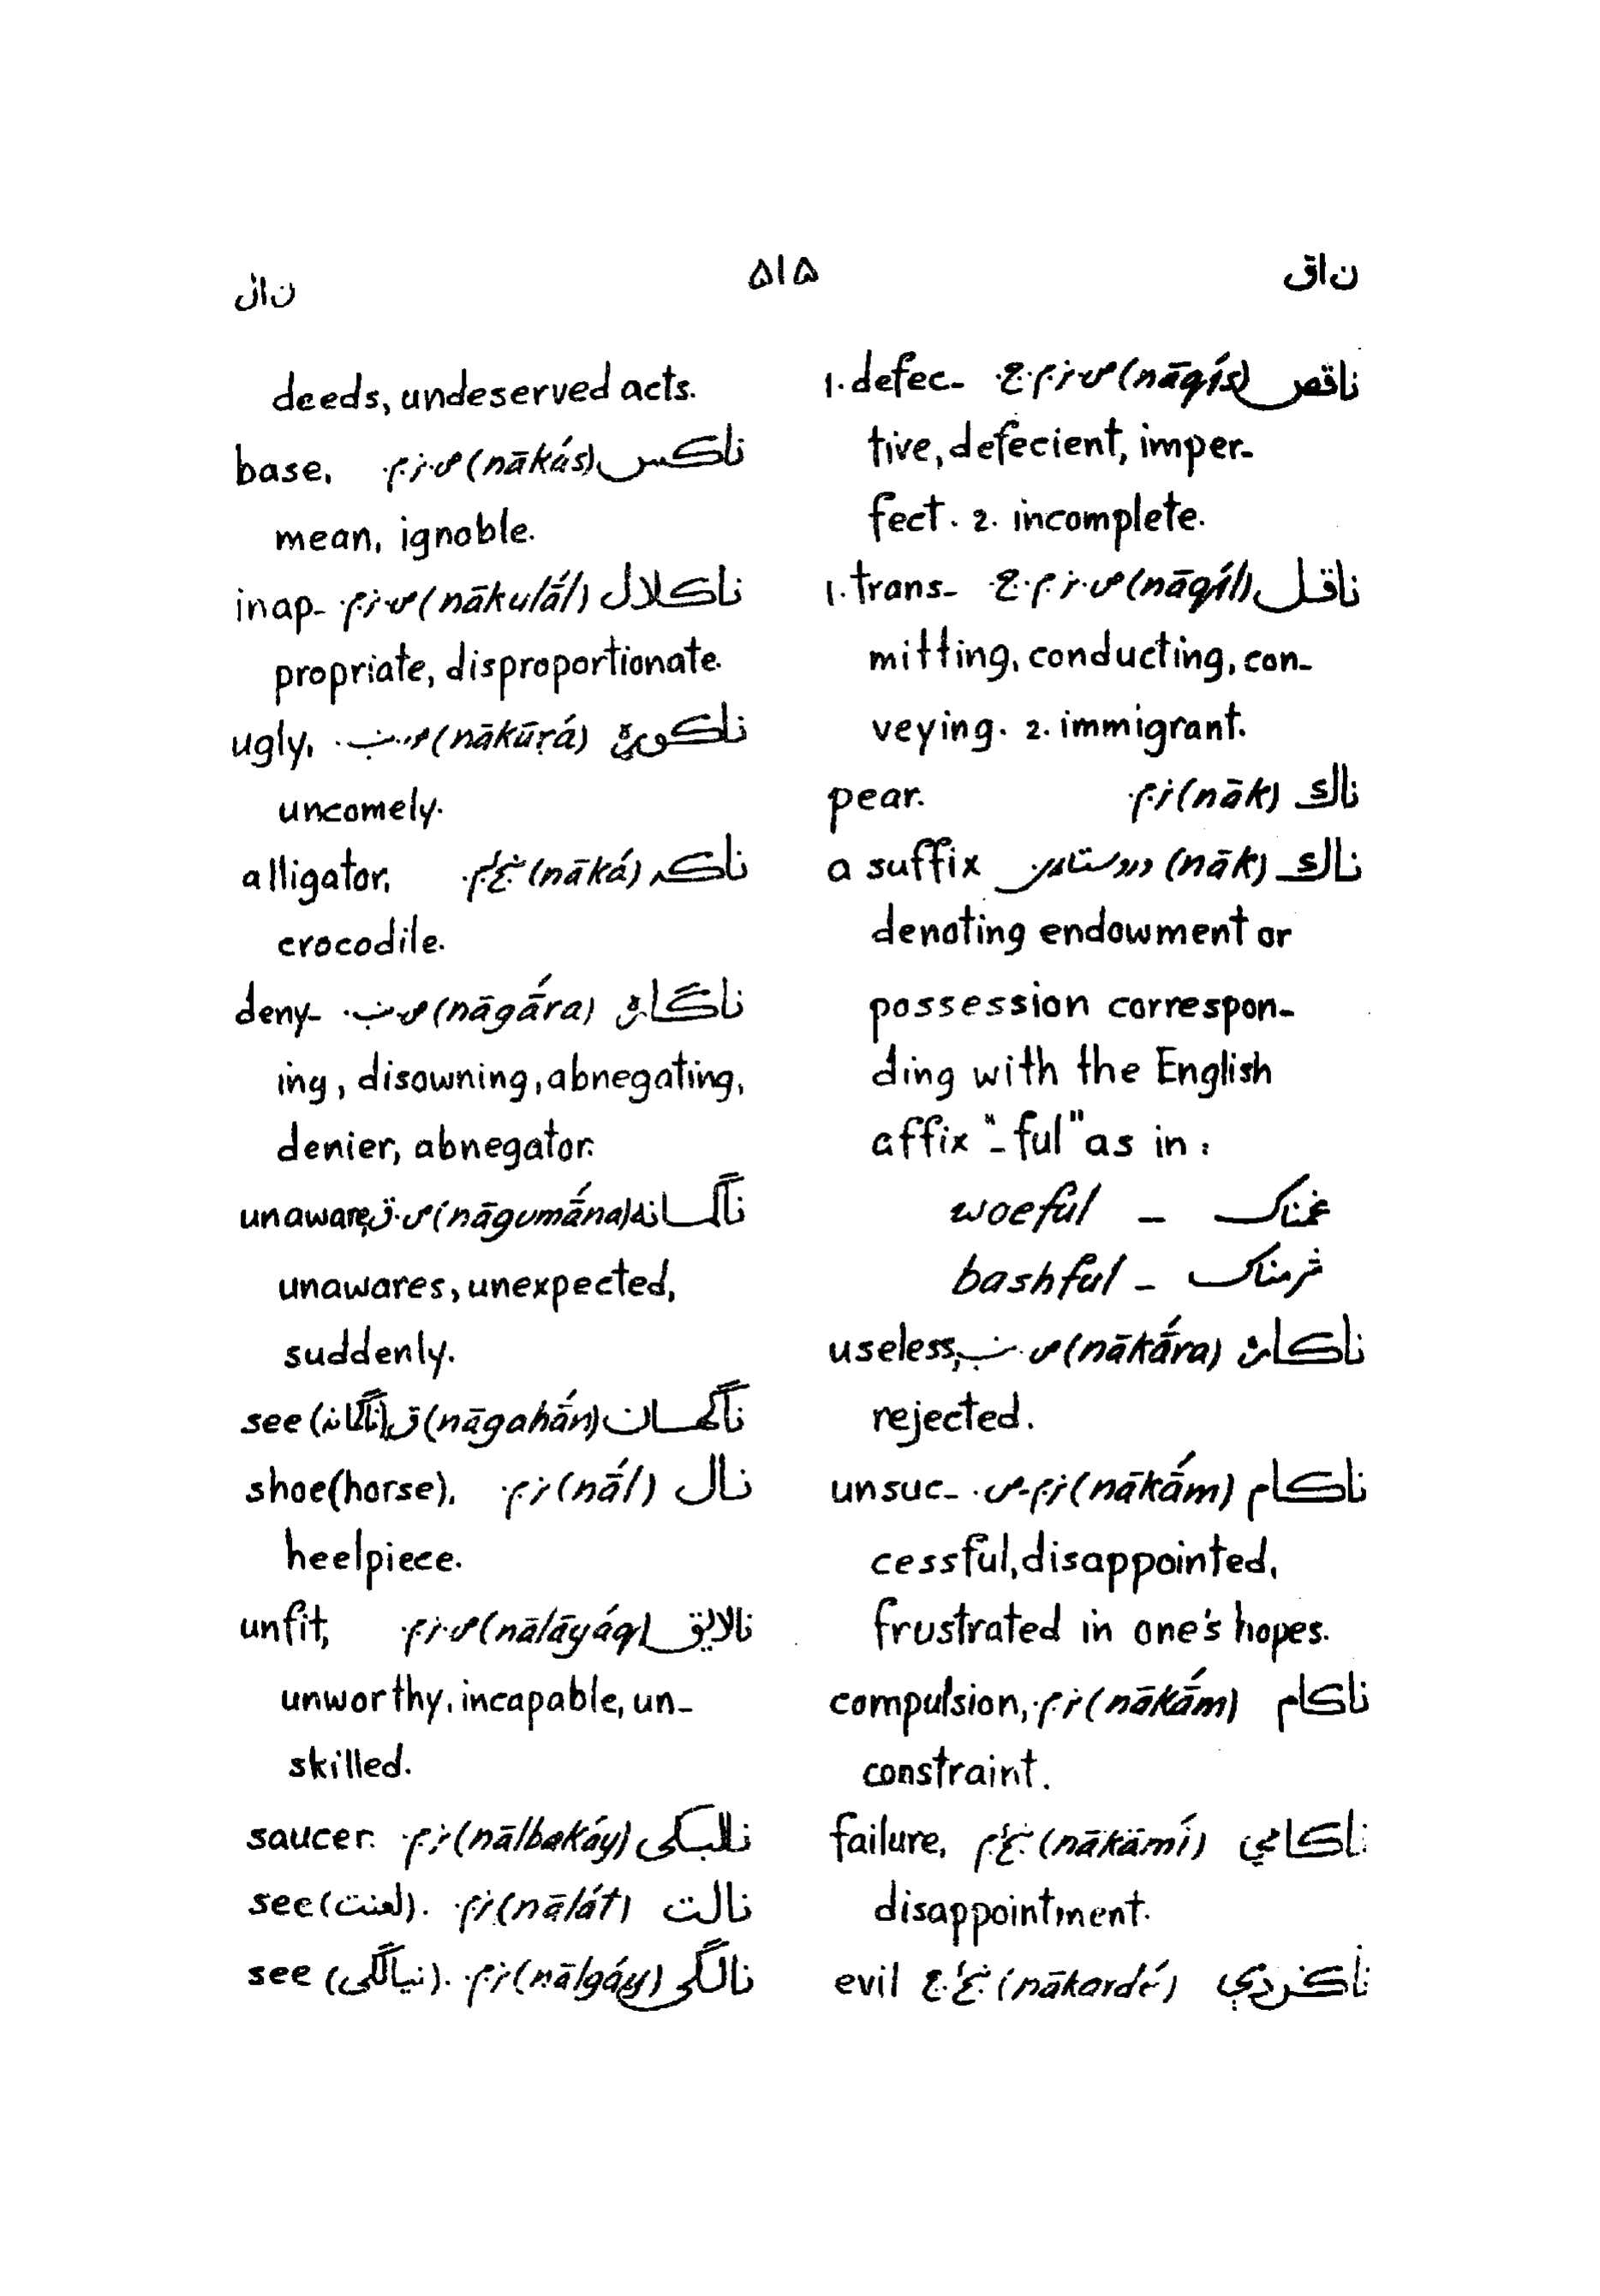 ناق
۵۱۵
نال
ناقص (nāqís) ص.ز.م.ع. 1. defec-
tive, defecient, imper-
fect. 2. incomplete.
ناقل (nāqíl) ص.ز.م.ع. 1. trans-
mitting, conducting, con-
veying. 2. immigrant.
ناك (nāk) ز.م. pear.
ناك (nāk) روستاړی a suffix
denoting endowment or
possession correspon-
ding with the English
affix "-ful" as in:
غمناک – woeful
شرمناک – bashful
ناکاره (nākā́ra) ص.ب. useless,
rejected.
ناکام (nākā́m) ز.م.ص. unsuc-
cessful, disappointed,
frustrated in one's hopes.
ناکام (nākā́m) ز.م. compulsion,
constraint.
ناکامي (nākāmí) failure,
disappointment.
ناکردې (nākardé) evil
deeds, undeserved acts.
ناکس (nākás) ص.ز.م. base,
mean, ignoble.
ناکلال (nākulā́l) ص.ز.م. inap-
propriate, disproportionate.
ناکوړه (nākūṛá) ص.ب. ugly,
uncomely.
ناکه (nāká) alligator,
crocodile.
ناګاره (nāgā́ra) ص.ب. deny-
ing, disowning, abnegating,
denier, abnegator.
ناګمانه (nāgumā́na) ص.ق. unaware,
unawares, unexpected,
suddenly.
ناګهان (nāgahā́n) ق. see (ناګمانه)
نال (nā́l) ز.م. shoe(horse),
heelpiece.
نالایق (nālāyáq) ص.ز.م. unfit,
unworthy, incapable, un-
skilled.
نالبکی (nālbakáy) ز.م. saucer.
نالت (nālát) ز.م. see (لعنت).
نالګی (nālgáy) ز.م. see (نیالګی).